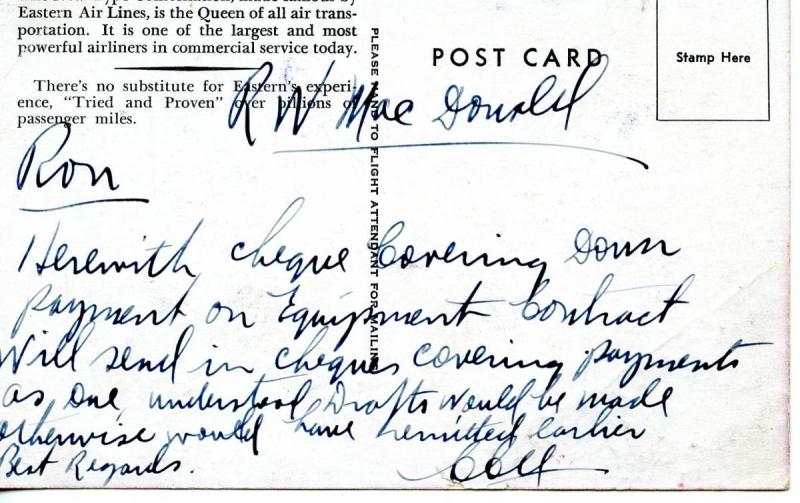 Eastern Air Lines, is the Queen of all air trans-
portation. It is one of the largest and most
powerful airliners in commercial service today.
There's no substitute for Eastern's experi-
ence, "Tried and Proven" over billions of
passenger miles.
POST CARD
Stamp Here
PLEASE HAND TO FLIGHT ATTENDANT FOR MAILING
R W MacDonald
Ron
Herewith cheque Covering Down
payment on Equipment Contract
Will send in cheques covering payments
as one understood Drafts would be made
otherwise would have remitted earlier
Best Regards.